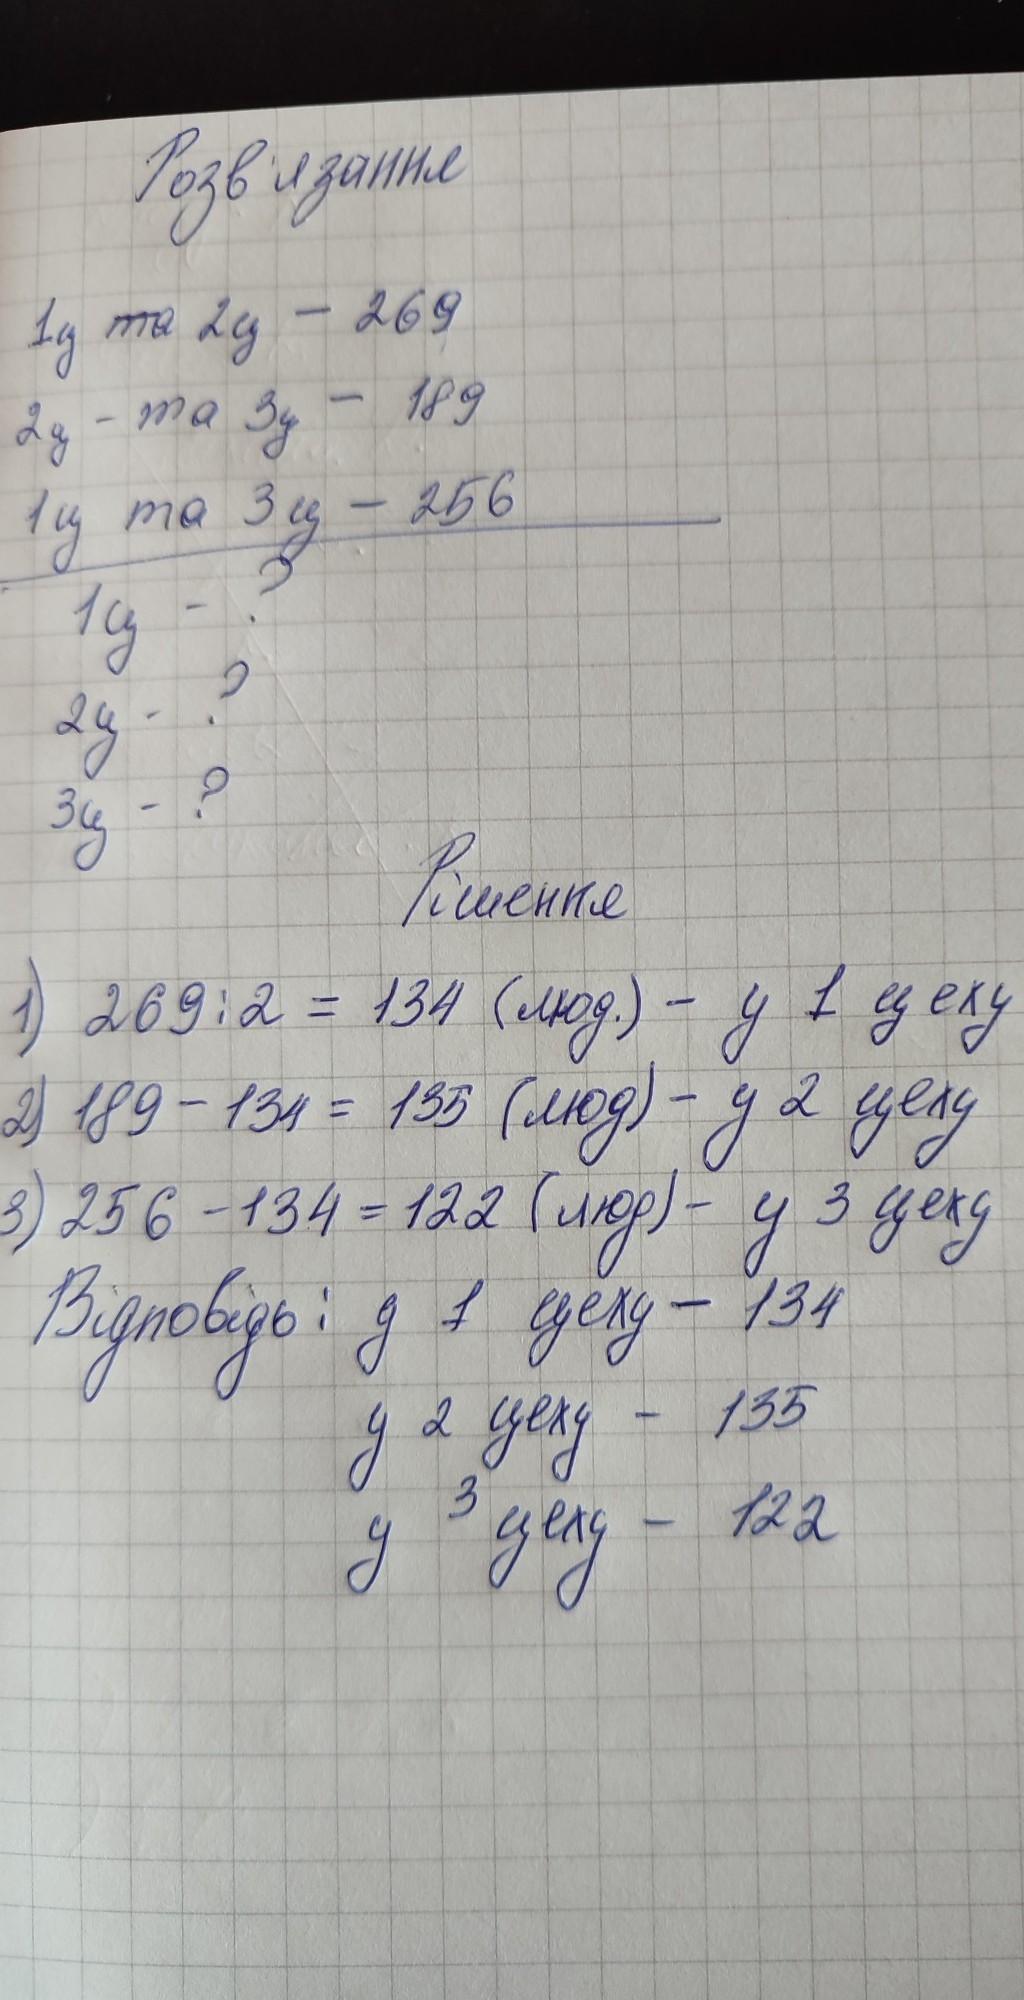 Розв'язання
1ц та 2ц - 269
2ц - та 3ц - 189
1ц та 3ц - 256
1ц - ?
2ц - ?
3ц - ?
Рішення
1) 269:2 = 134 (люд.) - у 1 цеху
2) 189 - 134 = 135 (люд) - у 2 цеху
3) 256 - 134 = 122 (люд) - у 3 цеху
Відповідь: у 1 цеху - 134
у 2 цеху - 135
у 3 цеху - 122